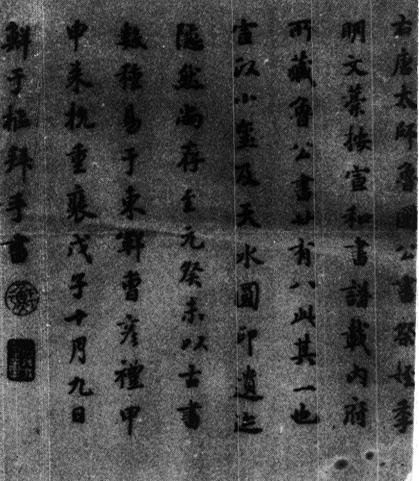 右唐太師魯國公書祭姪季
明文藁按宣和書譜載內府
所藏魯公書廿有八此其一也
宣政小璽及天水圓印遺迹
隱然尚存至元癸未以古書
數種易于東鄆曹彥禮甲
申來杭重裝戊子十月九日
鮮于樞拜手書